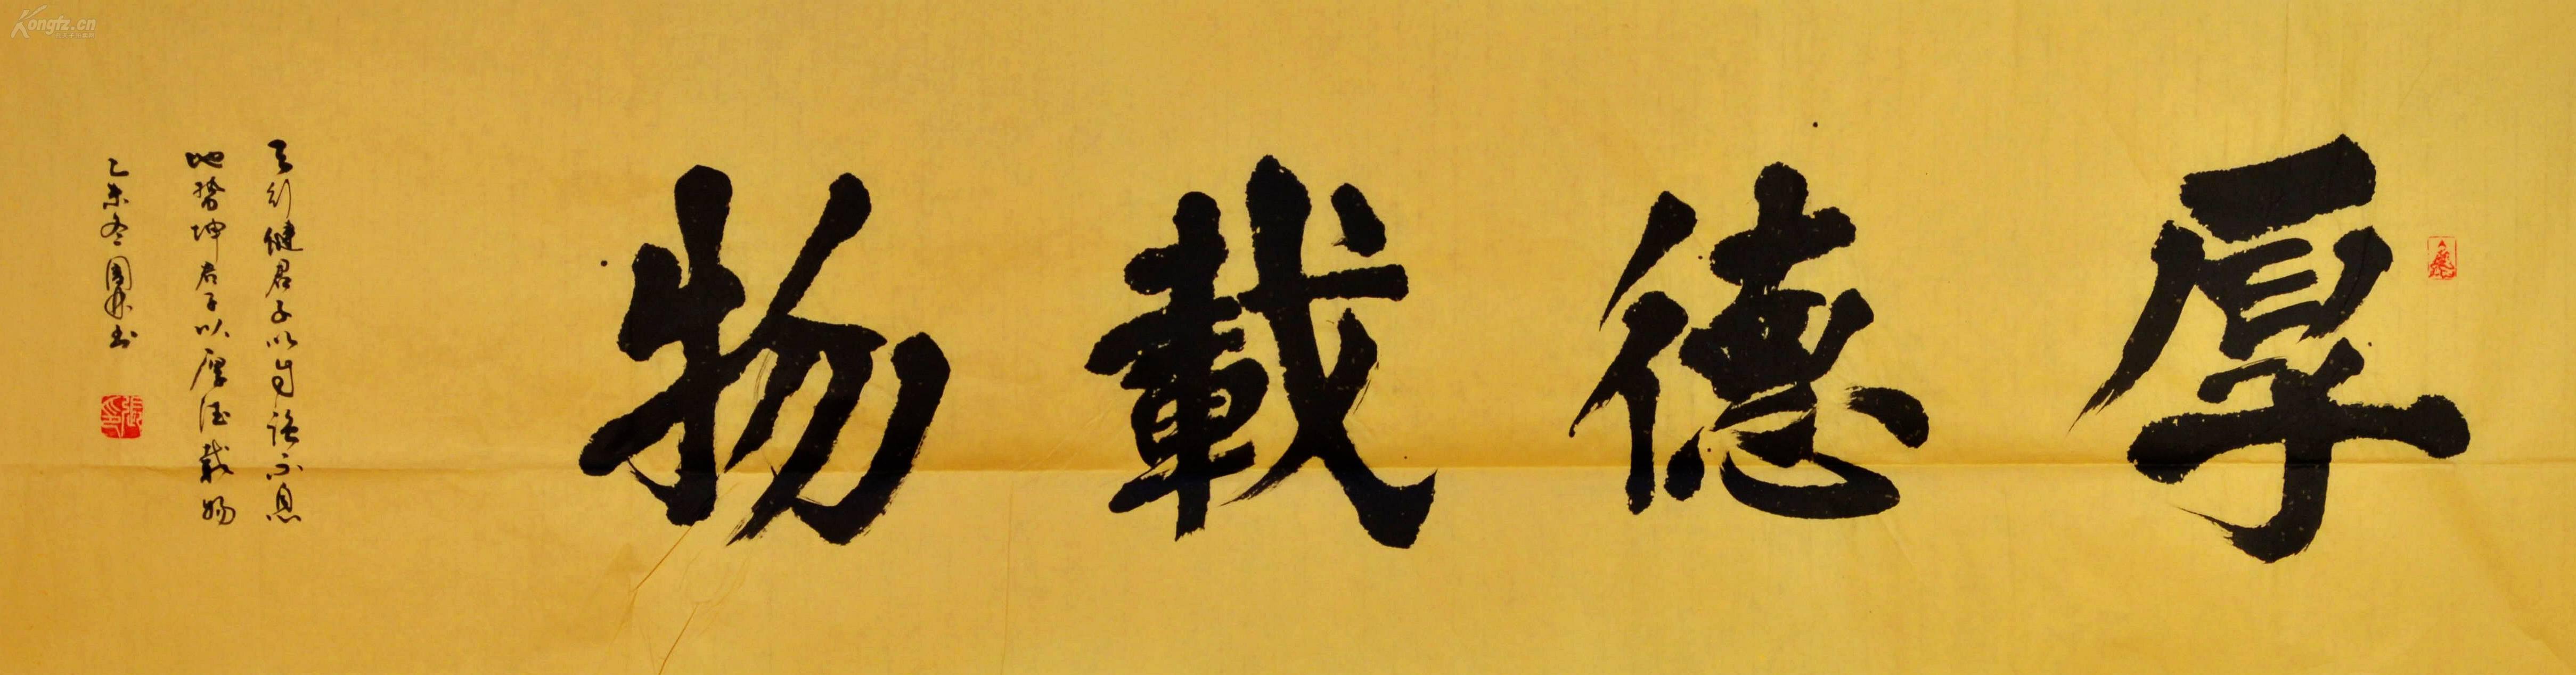 厚德載物
天行健君子以自强不息
地势坤君子以厚德載物
乙未冬國林书
Kongfz.cn